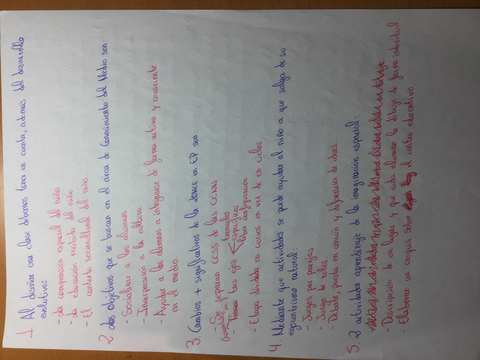 1. Al diseñar una clase debemos tener en cuenta, además del desarrollo evolutivo:
- la comprensión espacial del niño
- la educación recibida del niño
- El contexto sociocultural del niño
2. dos objetivos que se buscan en el área de Conocimiento del Medio son
- Socializar a los alumnos
- Interiorización a la cultura
- Ayudar a los alumnos a integrarse de forma activa y consciente en el medio.
3. Cambios + significativos de la LOMCE en EP son
- Se separan CCSS de las CCNN
- Tienen tres ejes
Troncales
Específicas
Libre configuración
- Etapa dividida en cursos en vez de en ciclos
4. Mediante que actividades se puede ayudar al niño a que salga de su egocentrismo natural:
- Juegos por parejas
- Juego de roles
- Debate, puesta en común y defensa de ideas
5. 2 actividades aprendizaje de la imaginación espacial:
- Descripción de un lugar y que cada alumno lo dibuje de forma individual
- Elaborar un croquis sobre el centro educativo